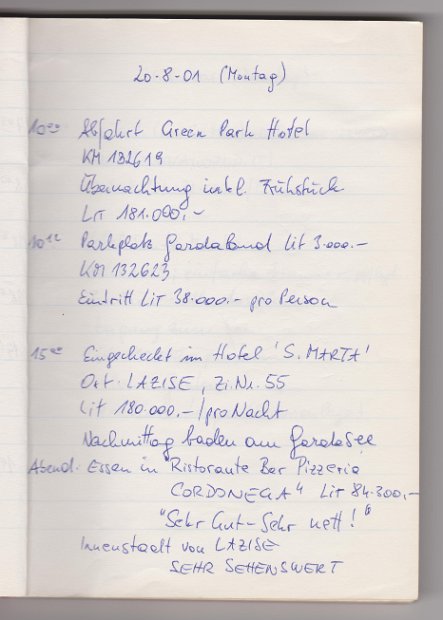 20-8-01 (Montag)
10⁰⁰ Abfahrt Green Park Hotel
KM 132619
Übernachtung inkl. Frühstück
LIT 181.000,-
10¹² Parkplatz Gardaland Lit 3.000.-
KM 132623
Eintritt LIT 38.000.- pro Person
15⁰⁰ Eingecheckt im Hotel 'S. MARTA'
Ort: LAZISE, Zi.Nr. 55
Lit 180.000,-/pro Nacht
Nachmittag baden am Gardasee
Abend: Essen in "Ristorante Bar Pizzeria
CORDONEGA" LIT 84.300,-
"Sehr Gut-Sehr nett!"
Innenstadt von LAZISE
SEHR SEHENSWERT